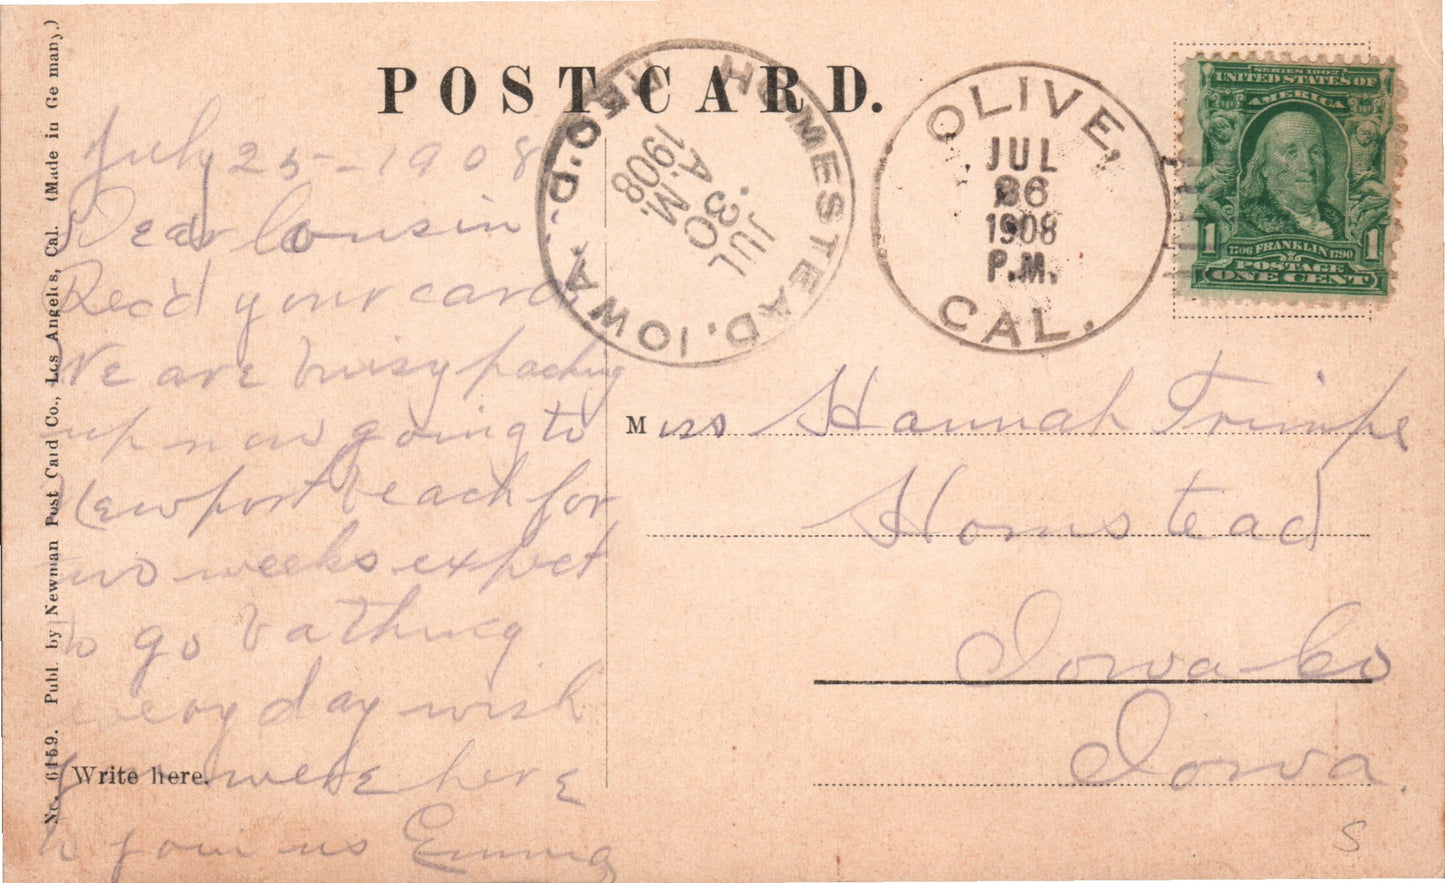 POST CARD.
No. 6159. Publ. by Newman Post Card Co., Los Angeles, Cal. (Made in Germany.)
July 25 - 1908
Dear Cousin
Rec'd your card
We are buisy packing
up now going to
Newport beach for
two weeks expect
to go bathing
every day wish
you were here
to join us Emma
Write here.
HOMESTEAD, IOWA.
REC'D.
JUL
30
A.M.
1908
OLIVE,
JUL
26
1908
P.M.
CAL.
SERIES 1902
UNITED STATES OF
AMERICA
1 1706 FRANKLIN 1790 1
POSTAGE
ONE CENT
Miss Hannah Trimpe
Homstead
Iowa Co
Iowa.
S